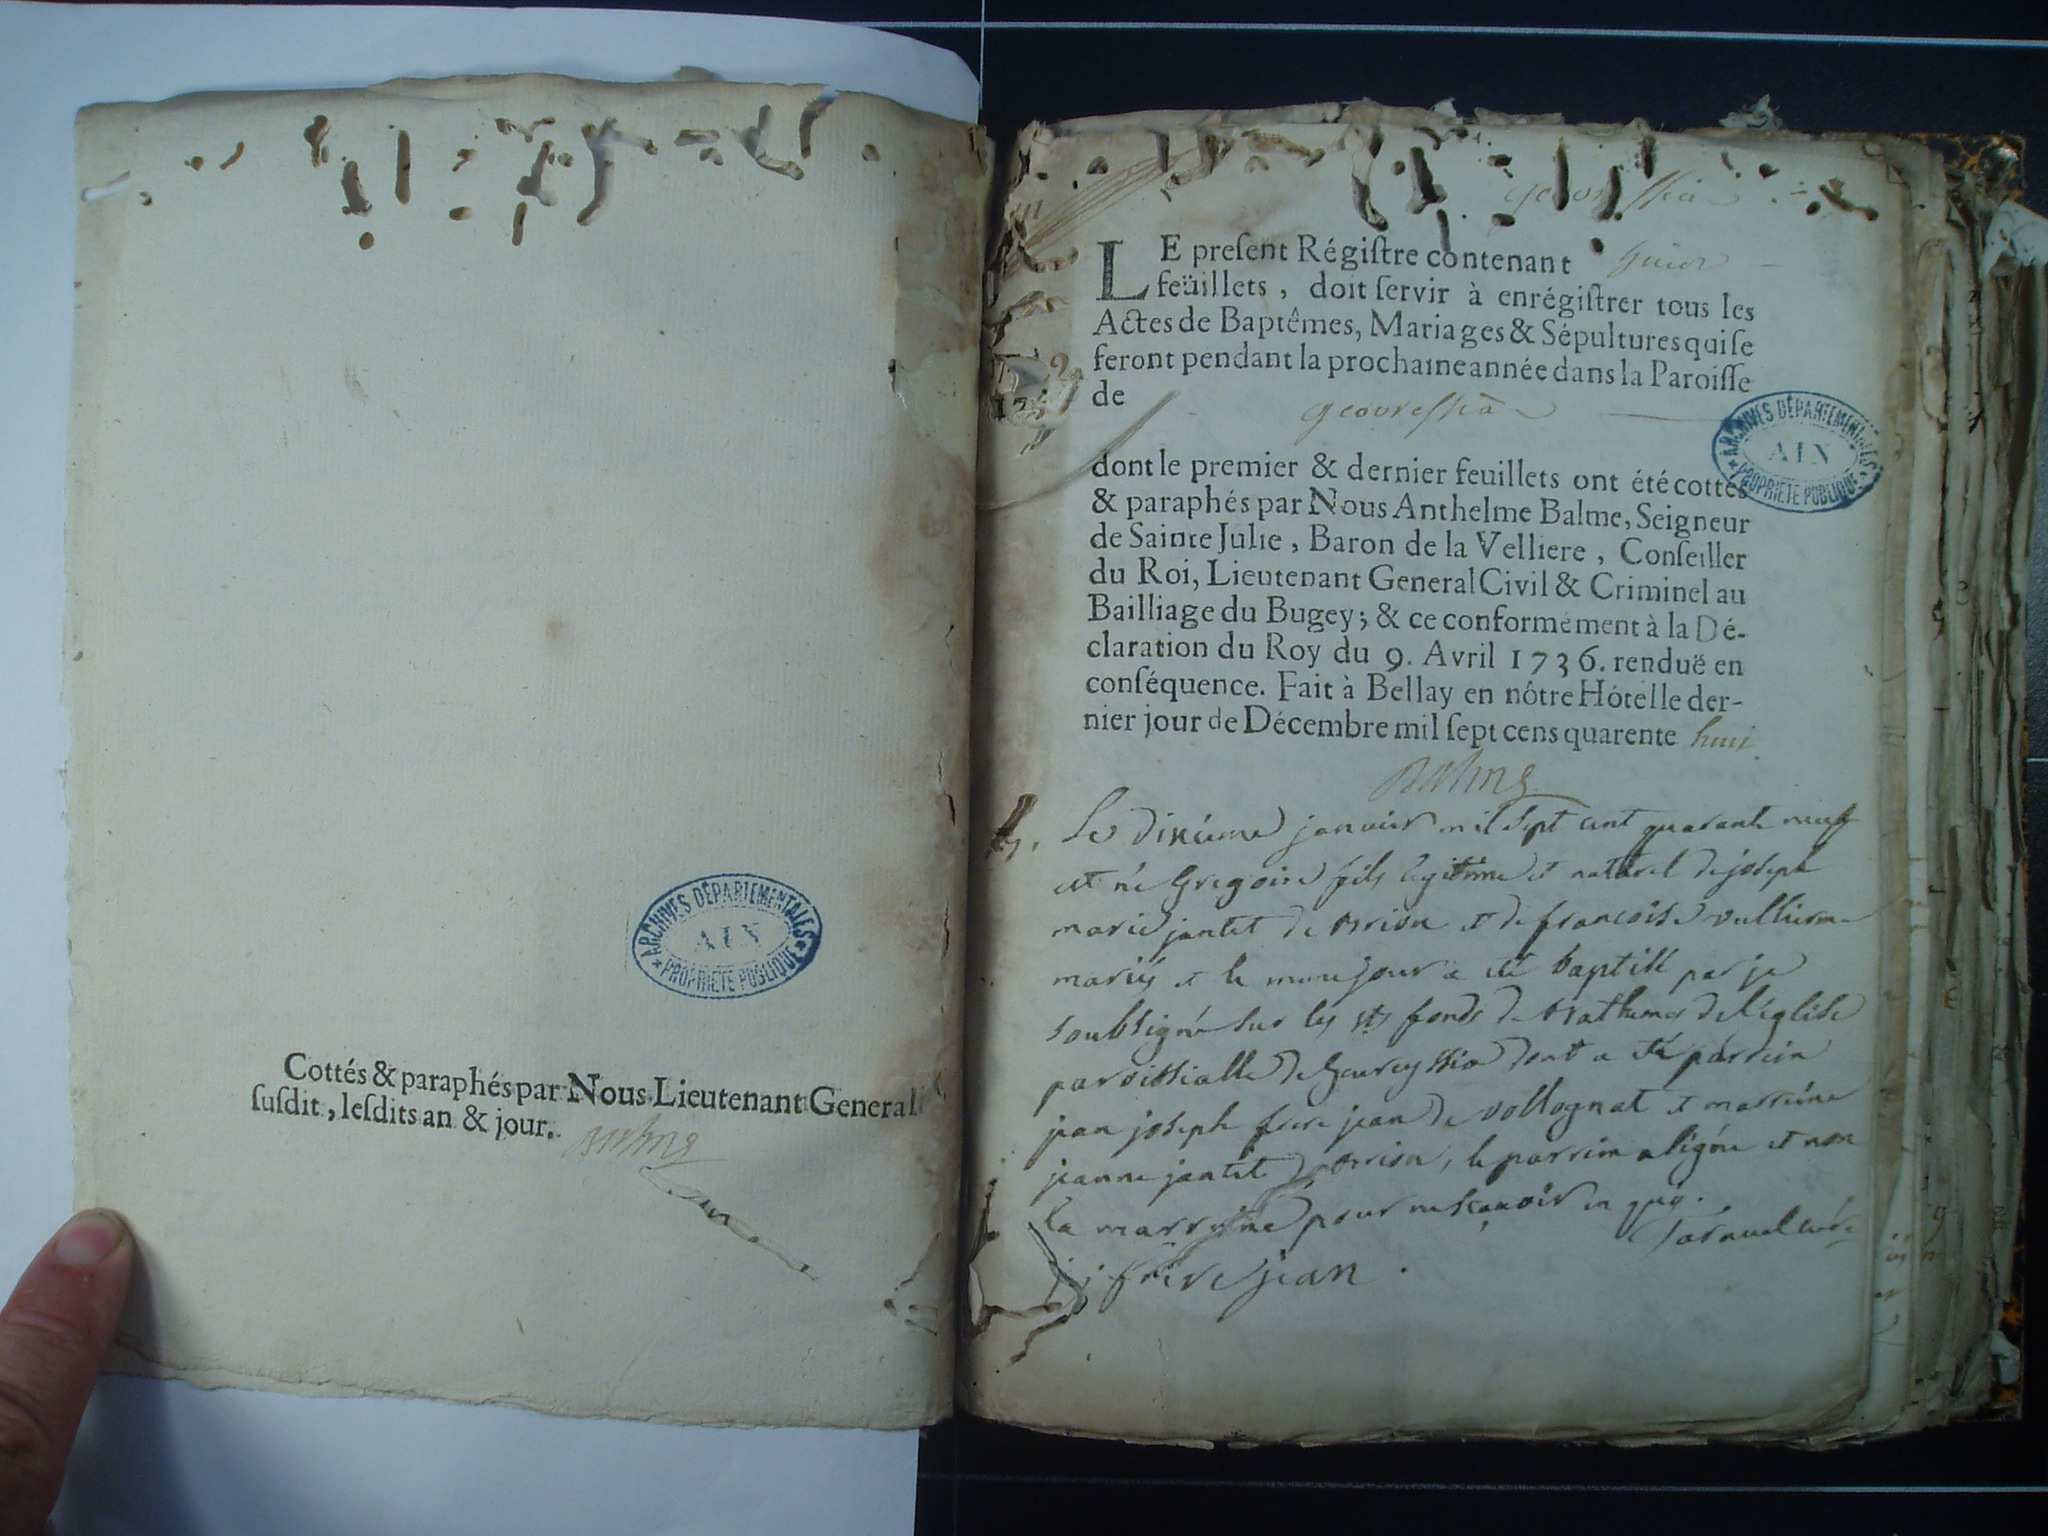 Cottés & paraphés par Nous Lieutenant General
susdit, lesdits an & jour.
ARCHIVES DÉPARTEMENTALES
AIN
PROPRIÉTÉ PUBLIQUE
geovressia
LE present Régistre contenant
feüillets, doit servir à enrégistrer tous les
Actes de Baptêmes, Mariages & Sépultures qui se
feront pendant la prochaine année dans la Paroisse
de geovressia
ARCHIVES DÉPARTEMENTALES
AIN
PROPRIÉTÉ PUBLIQUE
dont le premier & dernier feuillets ont été cottés
& paraphés par Nous Anthelme Balme, Seigneur
de Sainte Julie, Baron de la Velliere, Conseiller
du Roi, Lieutenant General Civil & Criminel au
Bailliage du Bugey; & ce conformément à la Dé-
claration du Roy du 9. Avril 1736. renduë en
conséquence. Fait à Bellay en nôtre Hôtel le der-
nier jour de Décembre mil sept cens quarente huit
Balme
Le dixieme janvier mil sept cent quarante neuf
est né Gregoire fils legitime et naturel de joseph
marie jantet de et de francoise vullierme
mariés et le meme jour a eté baptisé par je
soubsigné sur les sts fonds de de l'église
paroissialle de Geovreyssia dont a eté parrein
jean joseph frere jean de vollognat et marreine
jeanne jantet, le parrein a signé et non
la marreine pour ne sçavoir en
curé
j j frere jean.